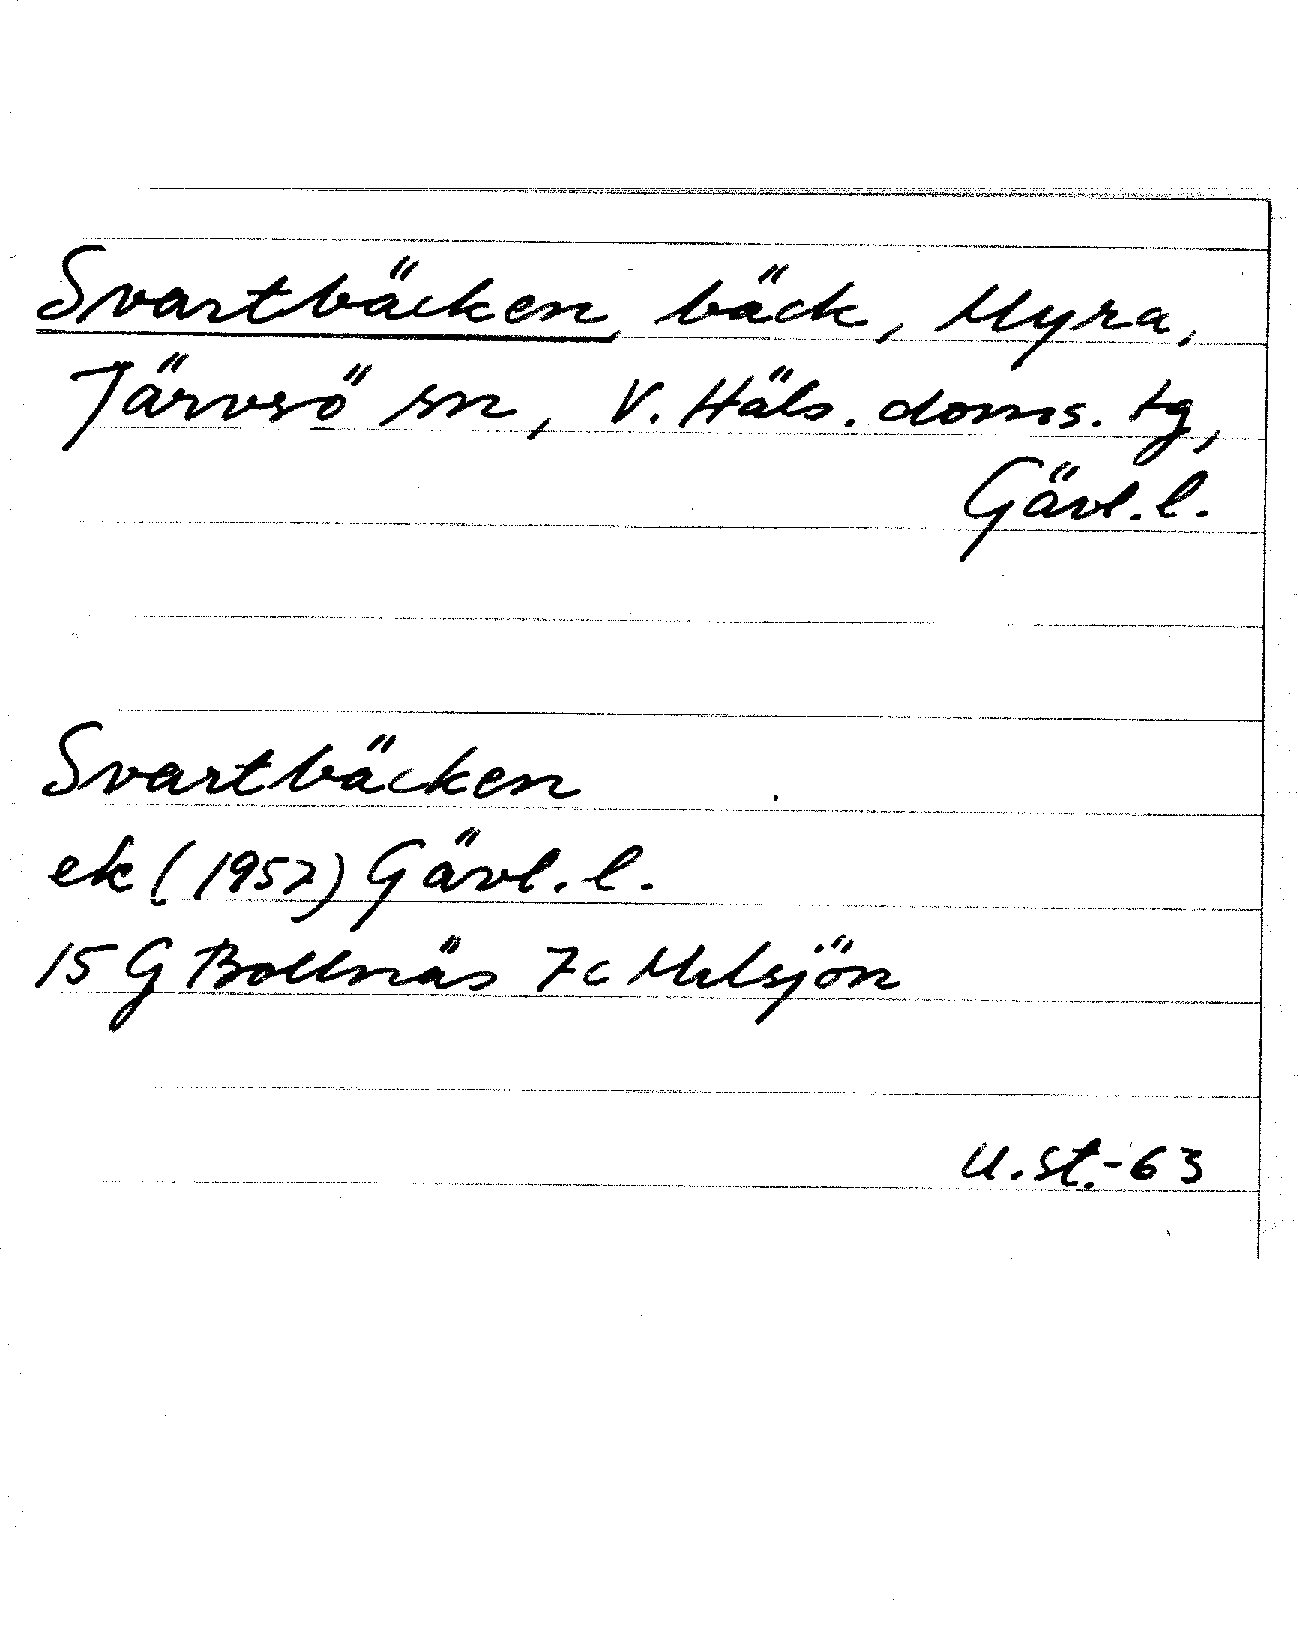 Svartbäcken, bäck, Myra,
Järvsö sn, V. Häls. doms. tg,
Gävl. l.
Svartbäcken
ek (1957) Gävl. l.
15 G Bollnäs 7c Melsjön
U.St.-63